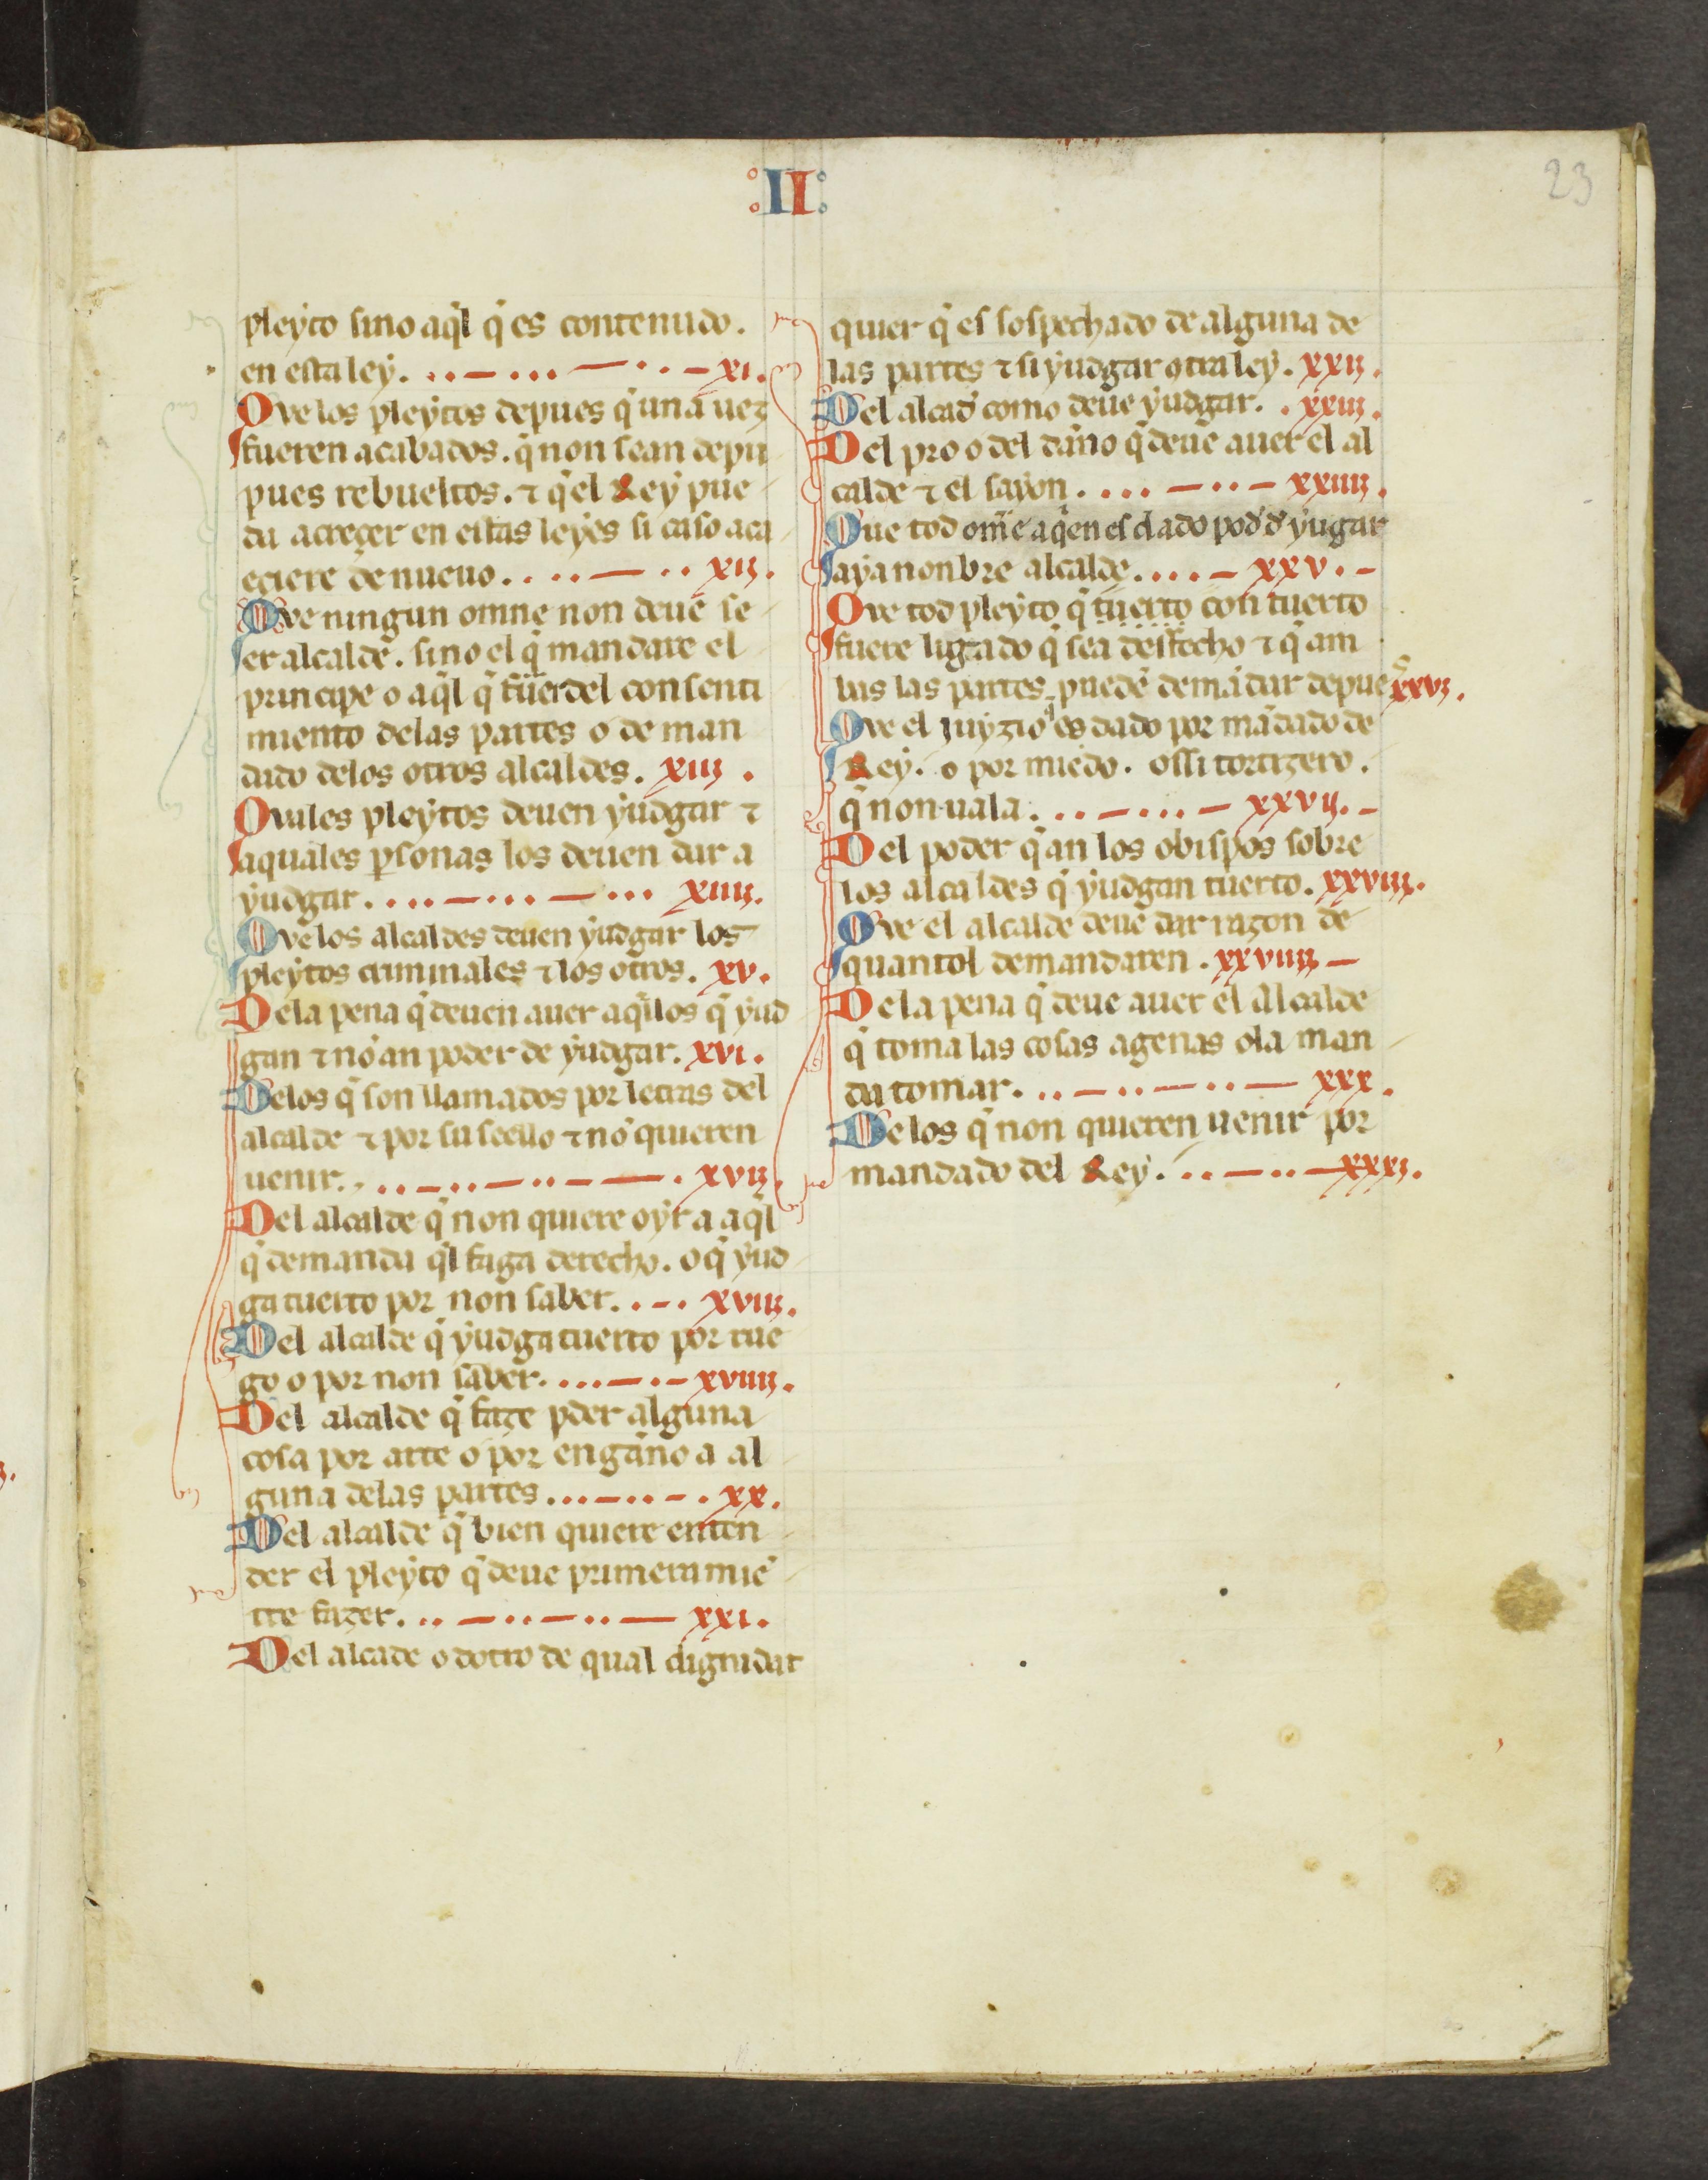 :II:
23
pleẏto sino aq̃l q̃ es contenudo.
en esta leẏ. xi.
Que los pleẏtos depues q̃ una uez
fueren acabados. q̃ non sean depu
pues rebueltos. ⁊ q̃ el Reẏ pue
da acreçer en estas leẏes si caso aca
eciere de nueuo. xii.
Que ningun omne non deue se
er alcalde. sino el q̃ mandare el
principe o aq̃l q̃ fuer del consenti
miento delas partes o de man
dado delos otros alcaldes. xiii.
Quales pleẏtos deuen ẏudgar ⁊
aquales ꝑsonas los deuen dar a
ẏudgar. xiiii.
Que los alcaldes deuen ẏudgar los
pleẏtos criminales ⁊ los otros. xv.
Dela pena q̃ deuen auer aq̃llos q̃ ẏud
gan ⁊ nõ an poder de ẏudgar. xvi.
Delos q̃ son llamados por letras del
alcalde ⁊ por su seello ⁊ nõ quieren
uenir. xvii.
Del alcalde q̃ non quiere oẏr a aq̃l
q̃ demanda q̃l faga derecho. o q̃ ẏud
ga tuerto por non saber. xviii.
Del alcalde q̃ ẏudga tuerto por rue
go o por non saber. xviiii.
Del alcalde q̃ faze ꝑder alguna
cosa por arte o por engãno a al
guna delas partes. xx.
Del alcalde q̃ bien quiere enten
der el pleẏto q̃ deue primera miẽ
tre fazer. xxi.
Del alcade o dotro de qual dignidat
quier q̃ es sospechado de alguna de
las partes ⁊ si ẏudgar otra leẏ. xxii.
Del alcad̃ como deue ẏudgar. xxiii.
Del pro o del dãno q̃ deue auer el al
calde ⁊ el saẏon. xxiiii.
Que tod om̃e aq̃en es dado pod̃ d̃ ẏugar
aẏa nonbre alcalde. xxv.
Que tod pleẏto q̃ tuerto con tuerto
fuere ligado q̃ sea desfecho ⁊ q̃ am
bas las partes puedẽ demãdar depues xxvi.
Que el juẏzio q̃ es dado por mãdado de
Reẏ. o por miedo. o ssi tortizero.
q̃ non uala. xxvii.
Del poder q̃ an los obispos sobre
los alcaldes q̃ ẏudgan tuerto. xxviii.
Que el alcalde deue dar razon de
quantol demandaren. xxviiii
De la pena q̃ deue auer el Alcalde
q̃ toma las cosas agenas o la man
da tomar. xxx.
De los q̃ non quieren uenir por
mandado del Reẏ. xxxi.